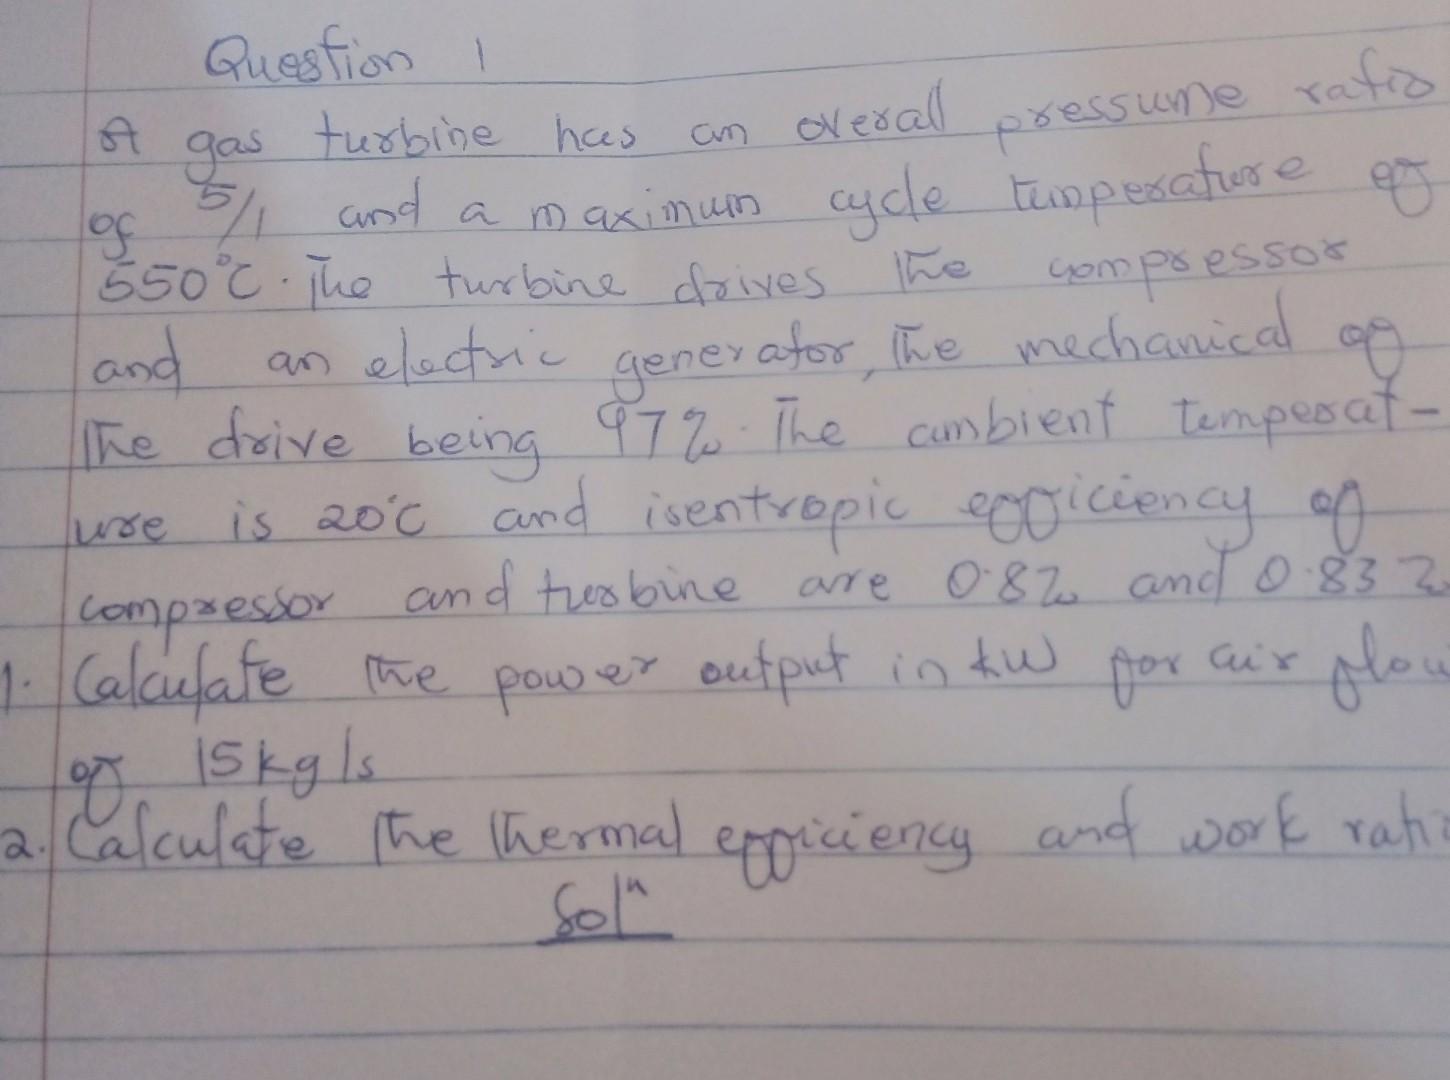 Question 1
A gas turbine has an overall pressume ratio
of 5/1 and a maximum cycle temperature of
550°C. The turbine drives the compressor
and an electric generator, the mechanical of
the drive being 97%. The ambient temperat-
ure is 20°C and isentropic efficiency of
compressor and turbine are 0.8% and 0.83%
1. Calculate the power output in kW for air flow
of 15kg/s
2. Calculate the thermal efficiency and work ratio
Solⁿ